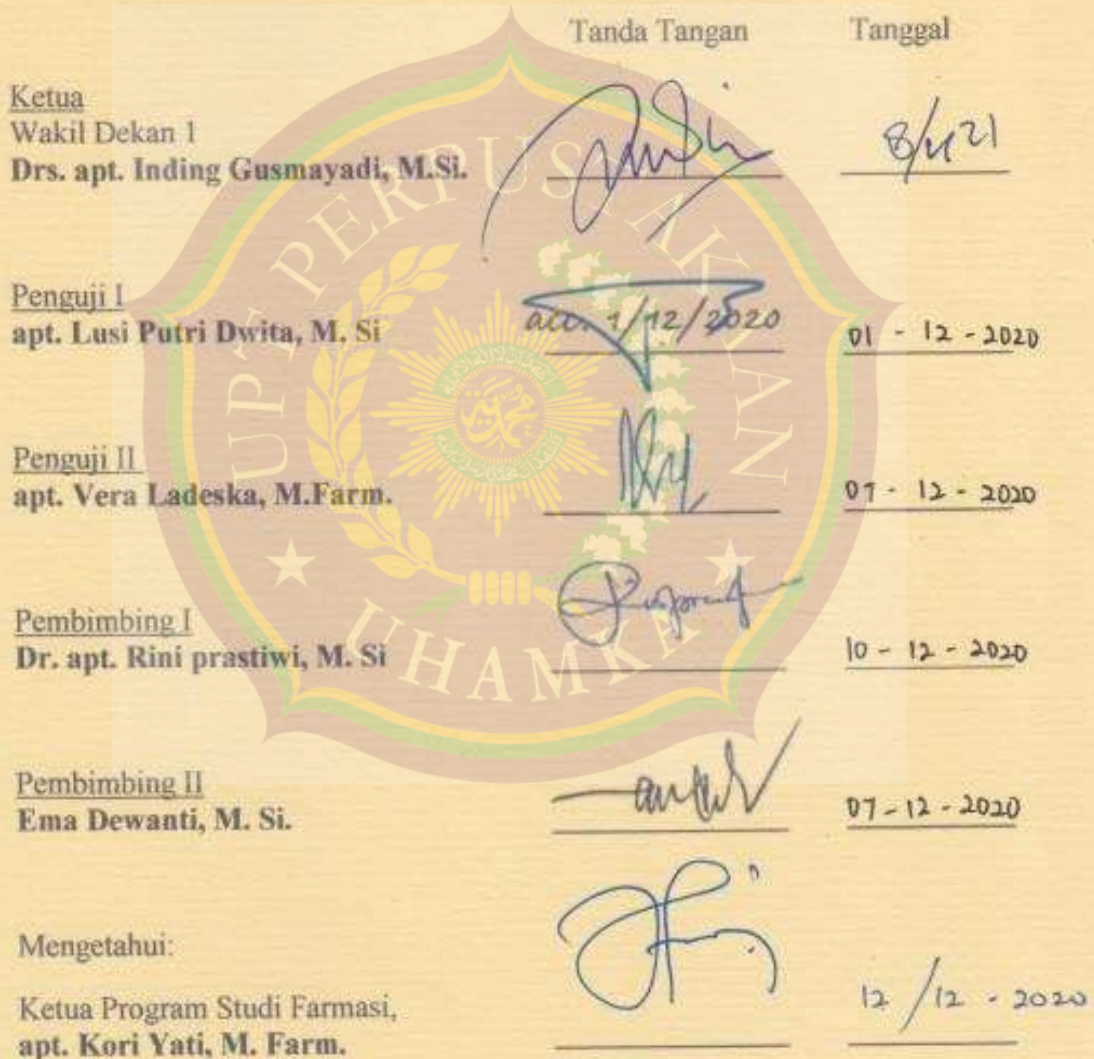 Tanda Tangan Tanggal
Ketua
Wakil Dekan 1
Drs. apt. Inding Gusmayadi, M.Si.
Penguji I
apt. Lusi Putri Dwita, M. Si
acc. 1/12/2020 01 - 12 - 2020
Penguji II
apt. Vera Ladeska, M.Farm.
07 - 12 - 2020
Pembimbing I
Dr. apt. Rini prastiwi, M. Si
10 - 12 - 2020
Pembimbing II
Ema Dewanti, M. Si.
07 - 12 - 2020
Mengetahui:
Ketua Program Studi Farmasi,
apt. Kori Yati, M. Farm.
12 / 12 - 2020
UPT PERPUSTAKAAN
UHAMKA